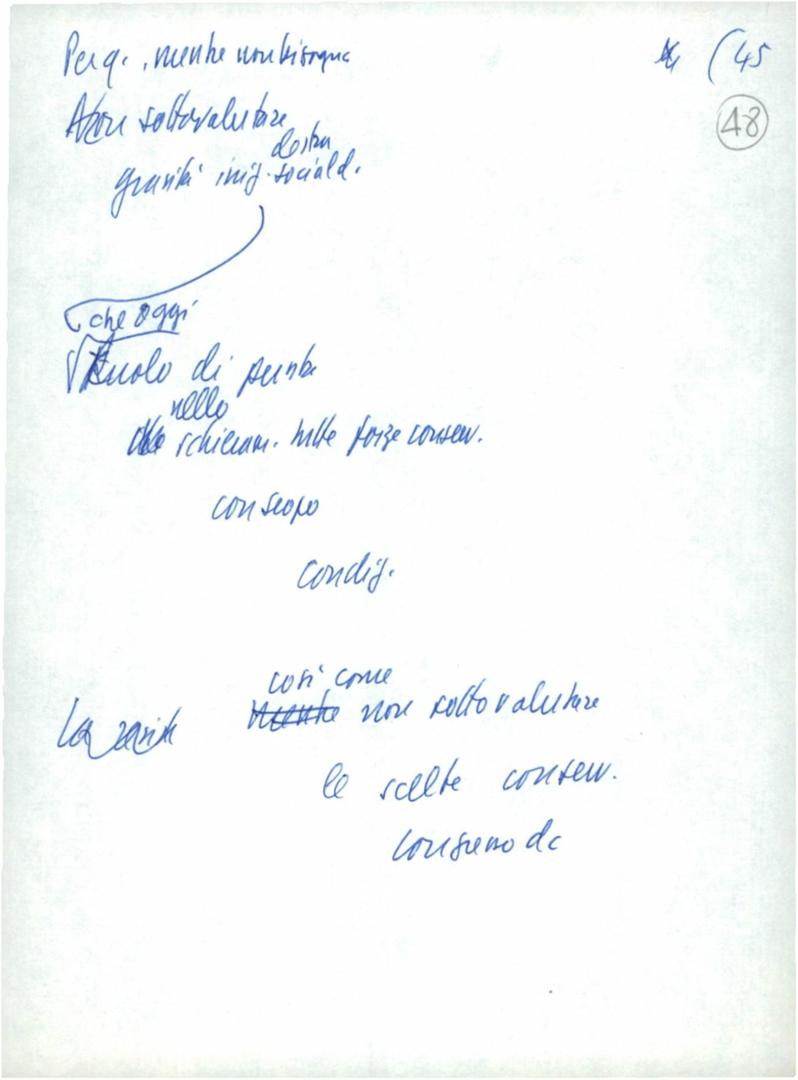 Per q. , mentre non bisogna (45
48
Non sottovalutare
destra
gravità iniz. sociald.
che oggi
Ruolo di punta
nello
schieram. tutte forze conserv.
con scopo
condiz.
così come
La gravità mentre non sottovalutare
le scelte conserv.
congresso dc